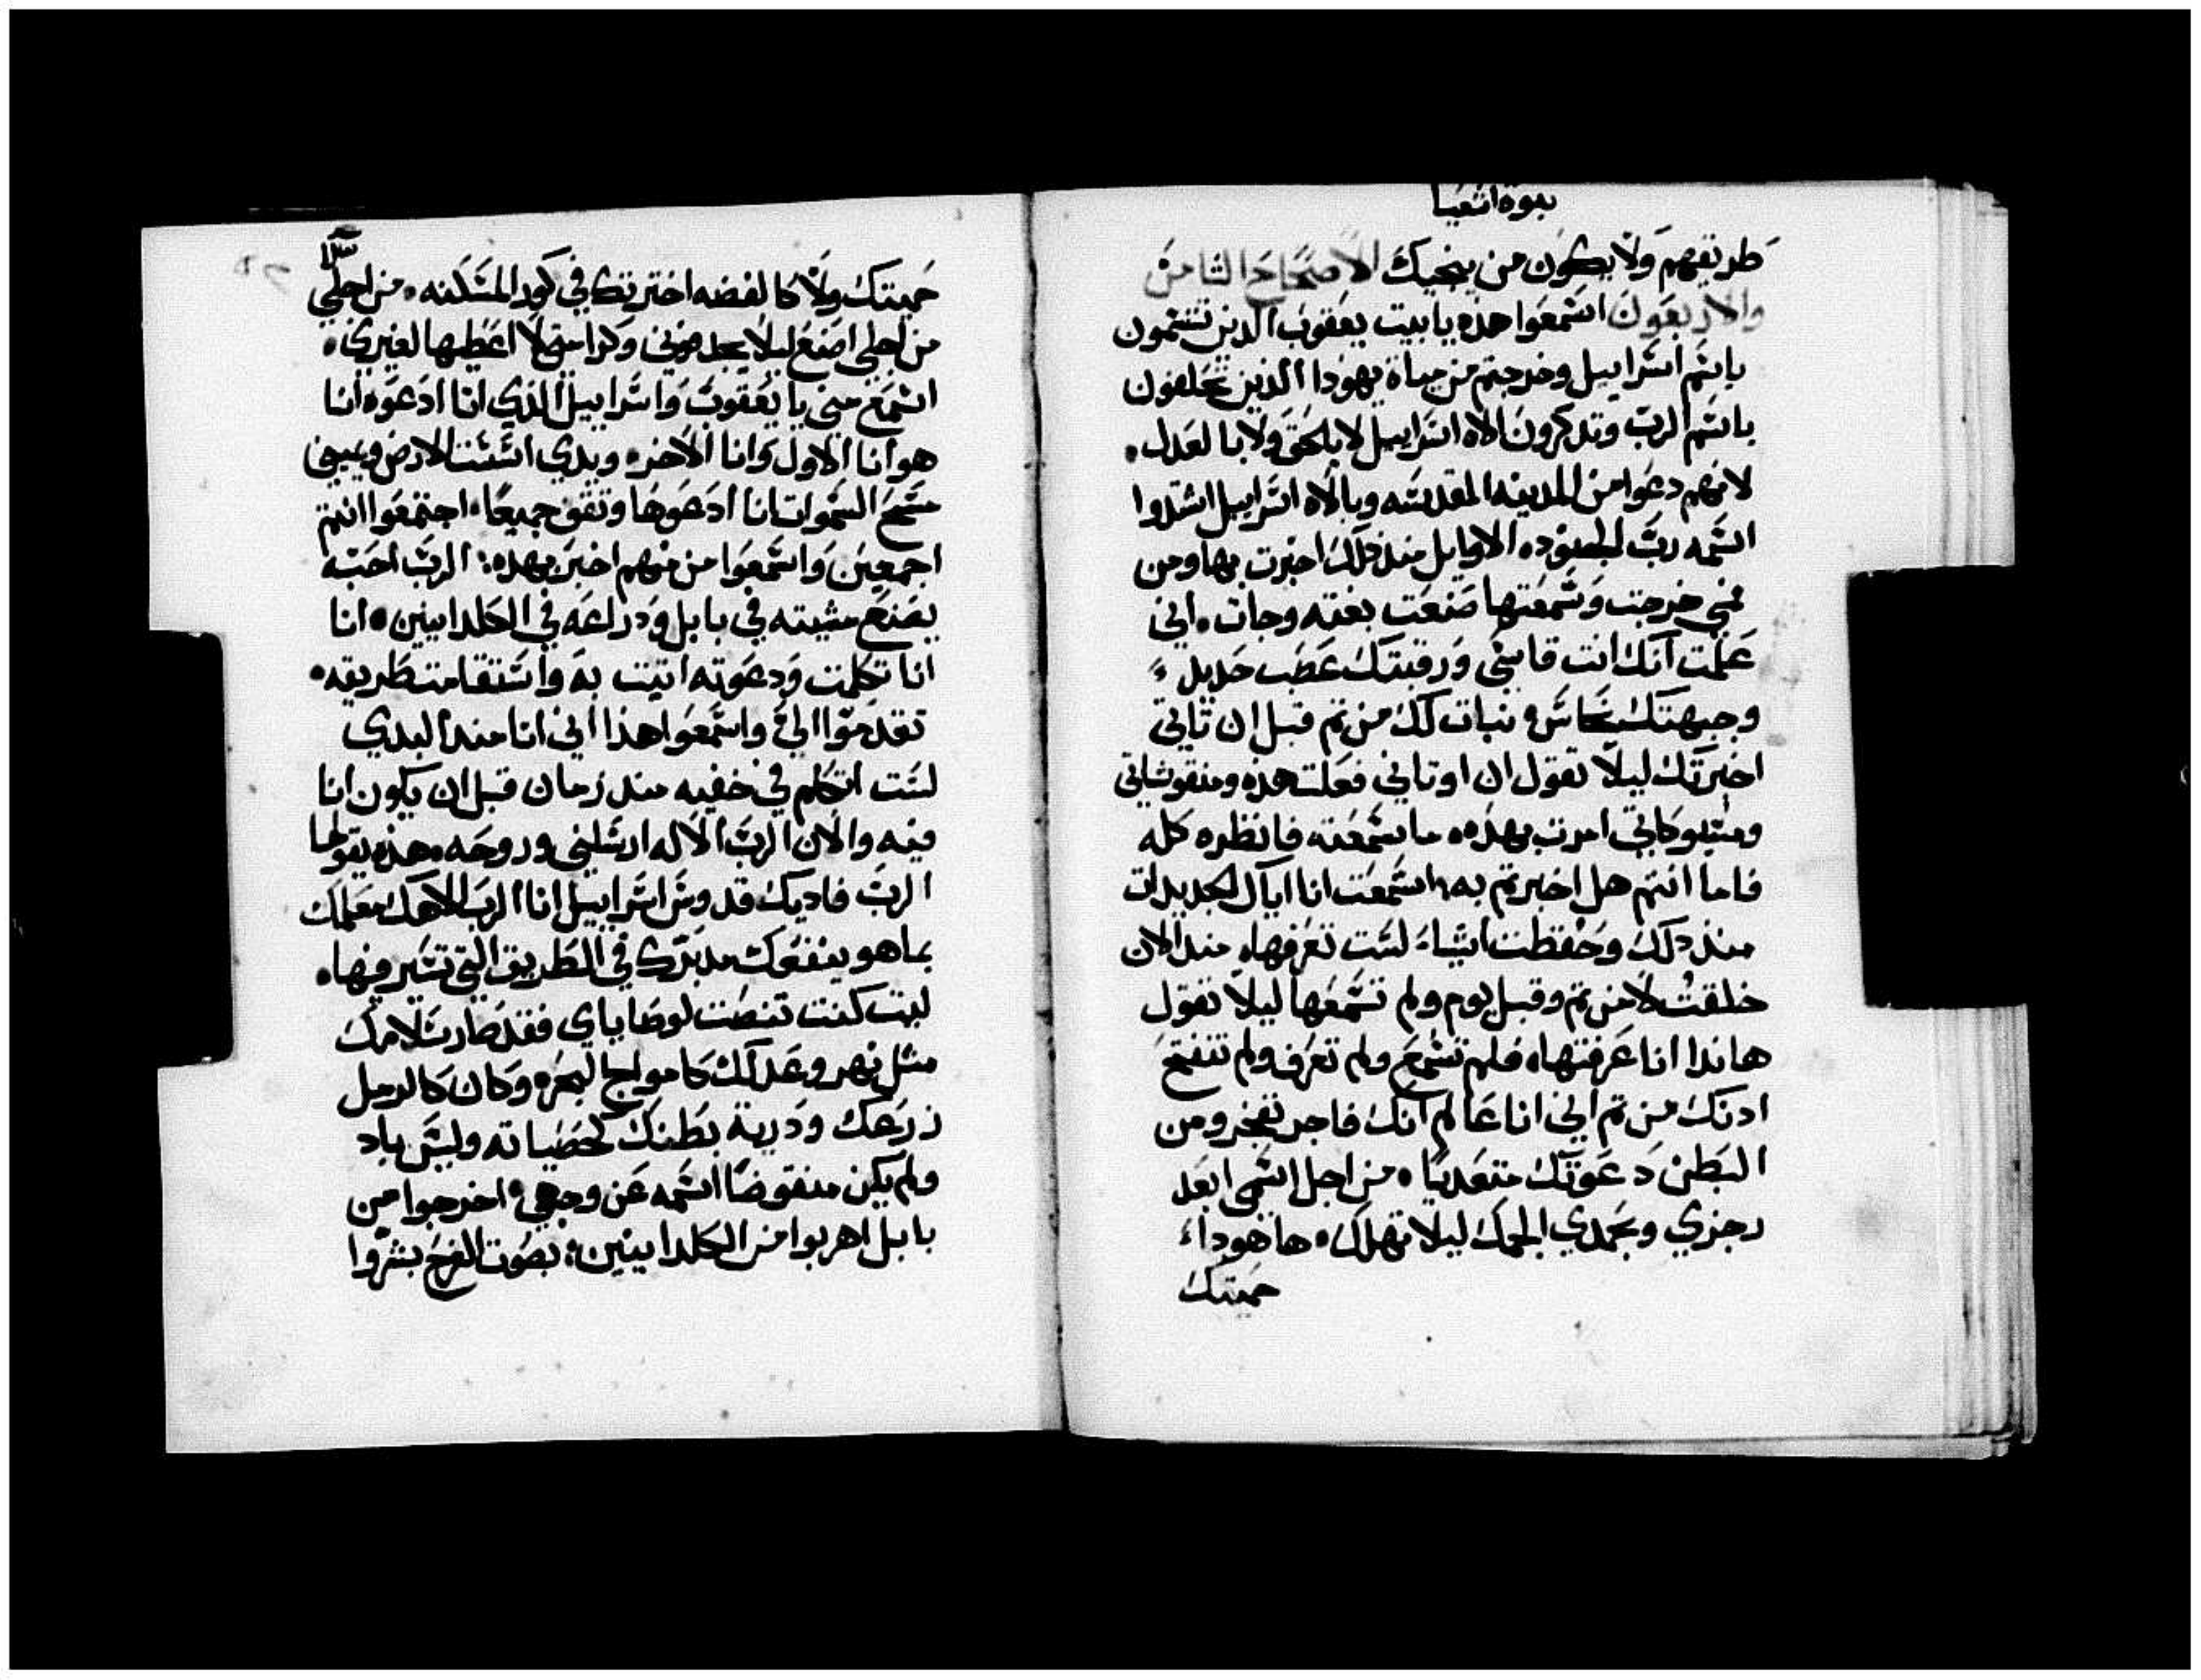 نبوة اشعيا
طريقهم ولا يكون من ينجيك الاصحاح الثامن
والاربعون اسمعوا هذه يا بيت يعقوب الذين تسمون
باسم اسراييل وخرجتم من مياة يهودا الذين تحلفون
باسم الرب وتدكرون الاه اسراييل لا بالحق ولا بالعدل.
لانهم دعوا من المدينه المقدسه وبالاه اسراييل استدوا
اسمه رب الجنود. الاوايل منذ ذلك اخبرت بها ومن
فمي خرجت وسمعتها صنعت بغته وجات. اني
علمت انك انت قاسي ورقبتك عصب حديد
وجبهتك نحاس. نبات لك من تم قبل ان تاتي
اخبرتك ليلا تقول ان اوتاني فعلت هذه ومنقوشاتي
ومسبوكاتي امرت بهذه. ما سمعته فانظره كله
فاما انتم هل اخبرتم به. اسمعت انا اياك الجديدات
منذ دلك وحفظت اشياء لست تعرفها. مند الان
خلقت لا من تم وقبل يوم ولم تسمعها ليلا تقول
هاندا انا عرفتها. فلم تسمع ولم تعرف ولم تنفتح
ادنك من تم اني انا عالم انك فاجر تفجر ومن
البطن دعوتك متعديا. من اجل اسمي ابعد
رجزي وبحمدي الجمك ليلا تهلك. ها هودا
حميتك
حميتك ولا كالفضه اخترتك في كور المسكنه. من اجلي
من اجلي اصنع ليلا يجدفوني وكرامتي لا اعطيها لغيري.
اسمع مني يا يعقوب واسراييل الذي انا ادعوه انا
هو انا الاول وانا الاخر. ويدي اسست الارض ويميني
مسح السموات انا ادعوها وتقف جميعا. اجتمعوا انتم
اجمعين واسمعوا من منهم اخبر بهده: الرب احبه
يصنع مشيته في بابل ودراعه في الكلدانيين. انا
انا تكلمت ودعوته اتيت به واستقامت طريقه.
تقدموا الي واسمعوا هذا اني انا مند البدي
لست اتكلم في خفيه مند زمان قبل ان يكون انا
فيه والان الرب الاله ارسلني وروحه. هذه يقولها
الرب فاديك قدوس اسراييل انا الرب الاهك معلمك
بما هو ينفعك مدبرك في الطريق التي تسير فيها.
ليت كنت تنصت لوصاياي فقد صار سلامك
مثل نهر وعدلك كامواج البحر. وكان كالرمل
زرعك ودرية بطنك كحصياته وليس باد
ولم يكن منقوضا اسمه عن وجهي. اخرجوا من
بابل اهربوا من الكلدانيين: بصوت الفرح بشروا